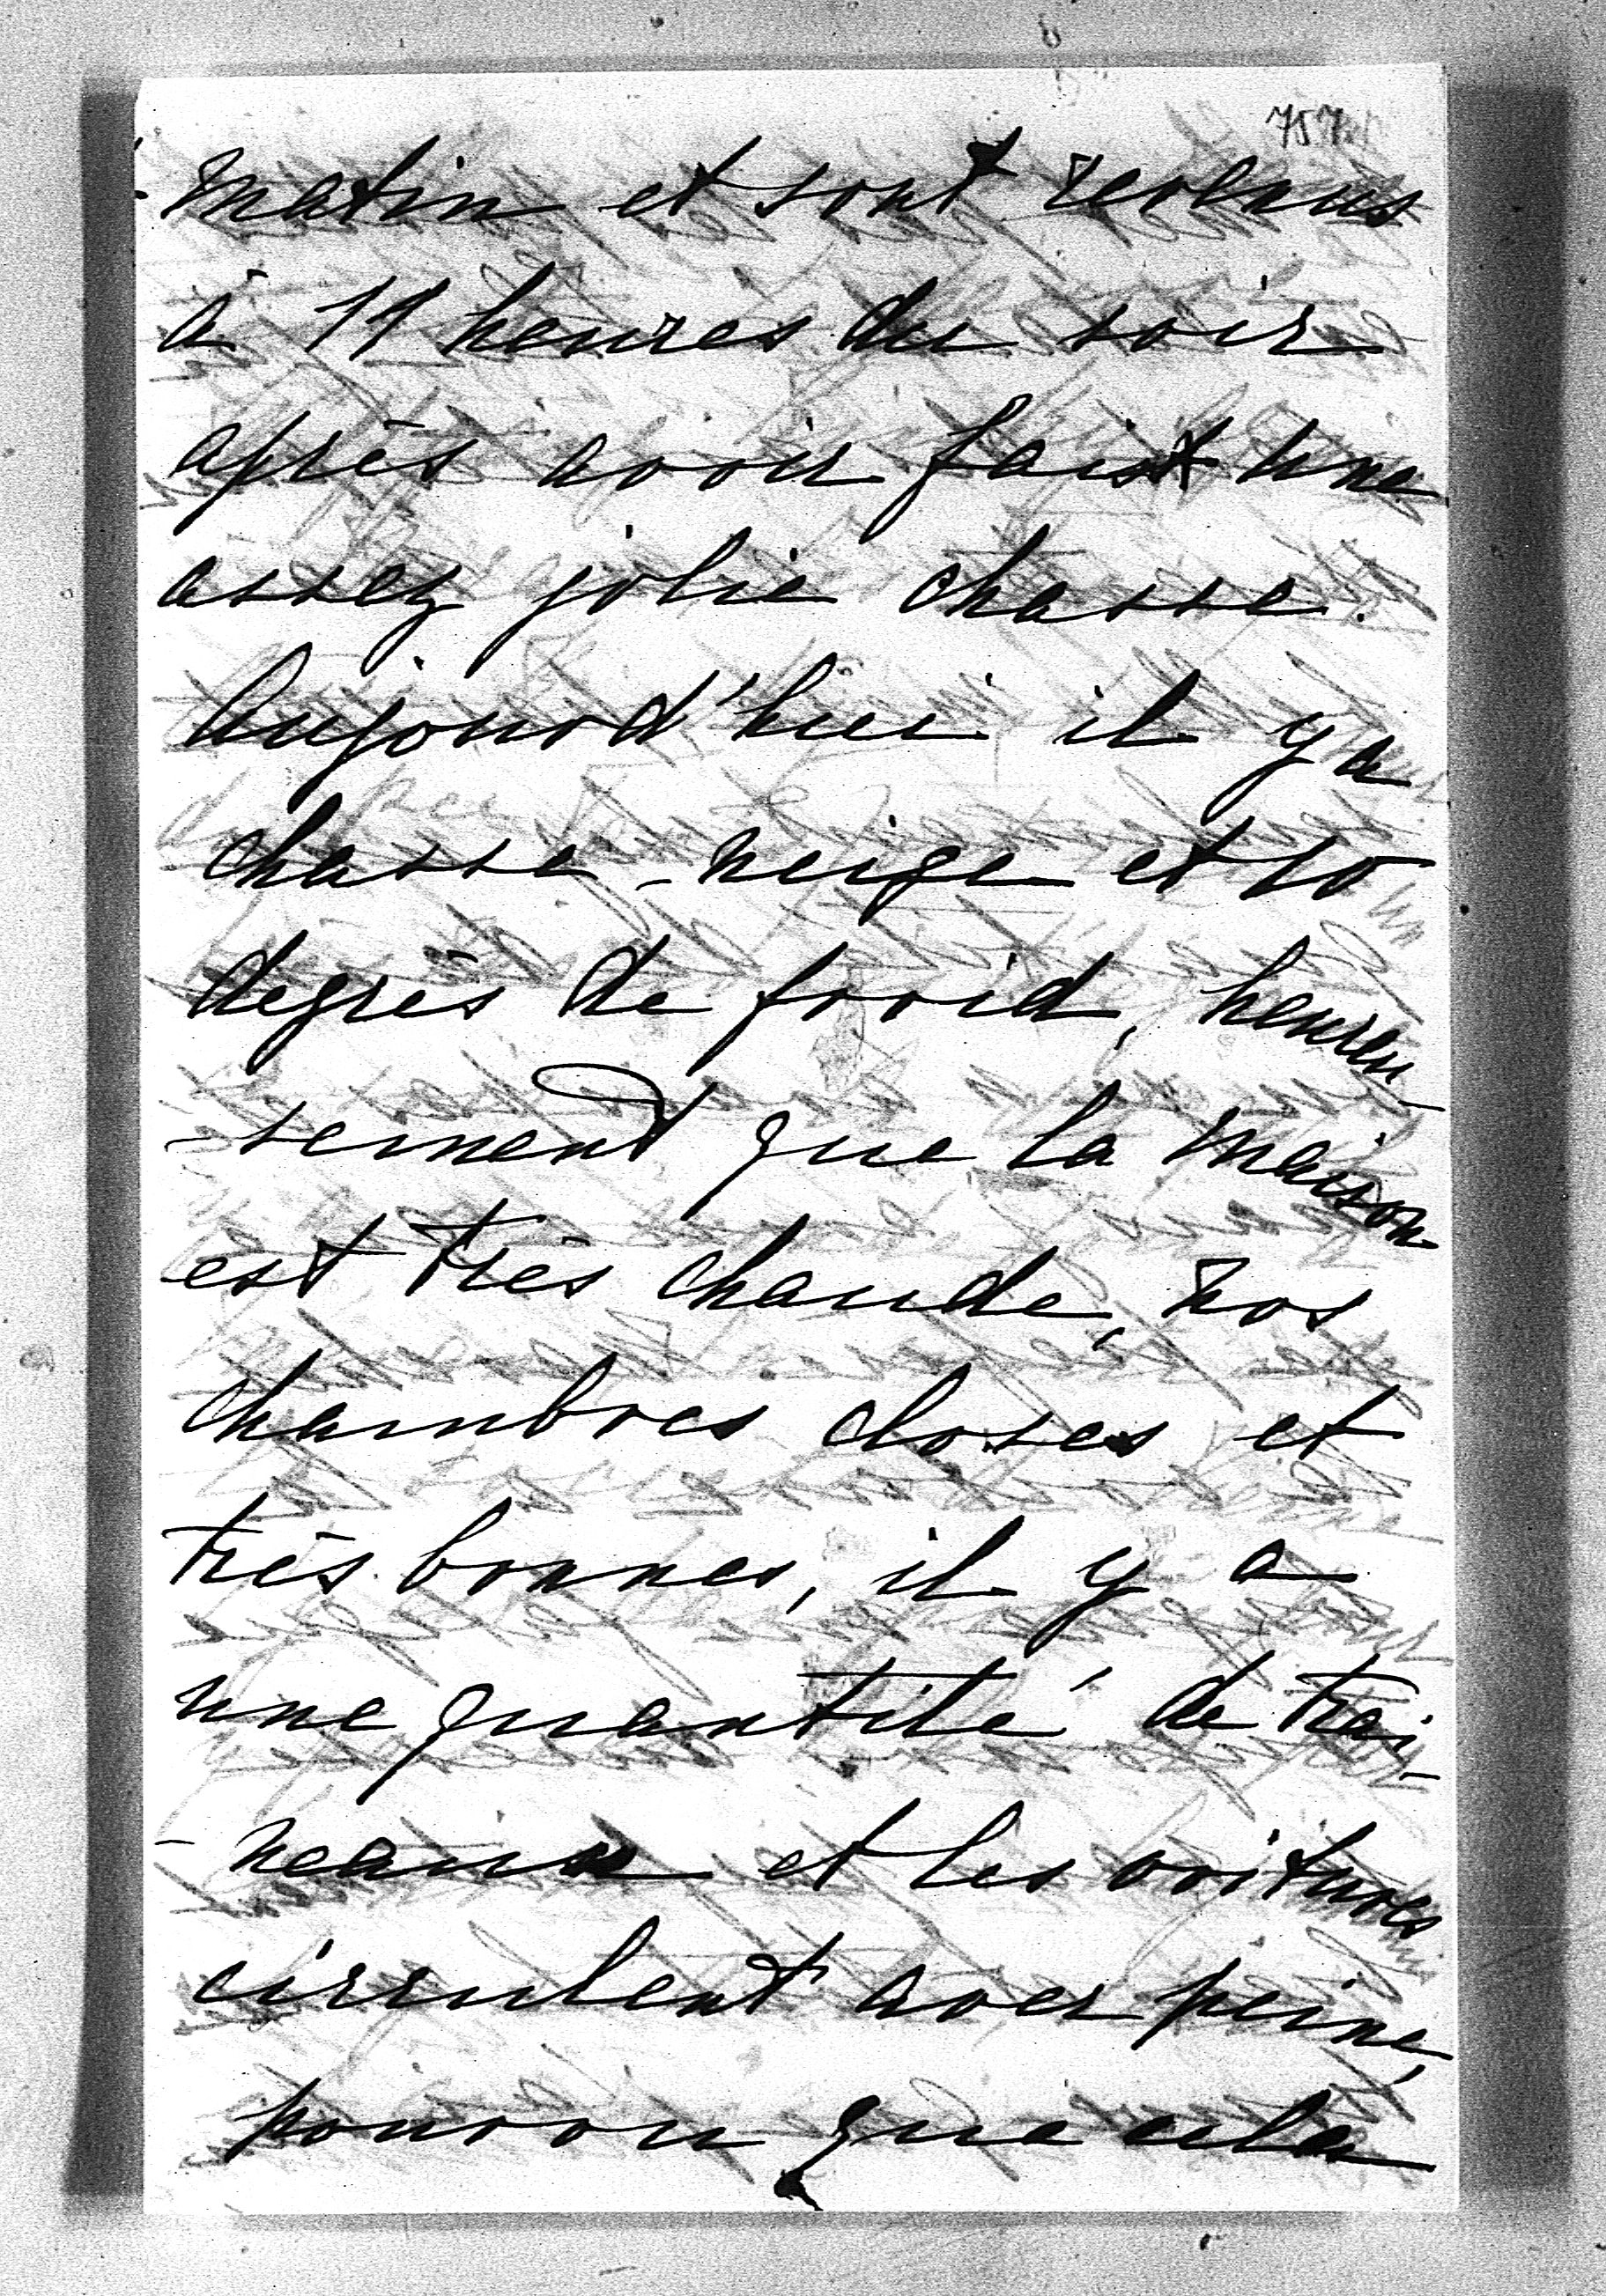 757
matin et sont revenus
à 11 heures du soir
après avoir fait une
assez jolie chasse.
Aujourd'hui il y a
chasse-neige et 10
degrès de froid, heureu-
-sement que la maison
est très chaude, nos
chambres closes et
très bonnes, il y a
une quantité de trai-
-neaux et les voitures
circulent avec peine,
pourvu que cela